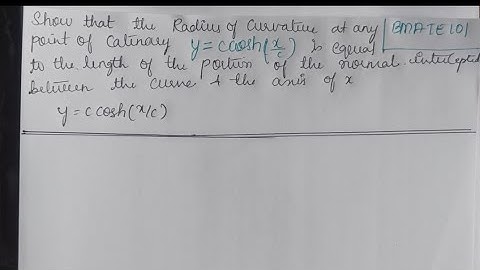 Show that the Radius of Curvature at any BMATE101
point of Catinary y = c cosh(x/c) Is equal
to the length of the portion of the normal Intercepted
between the curve & the axis of x
y = c cosh(x/c)